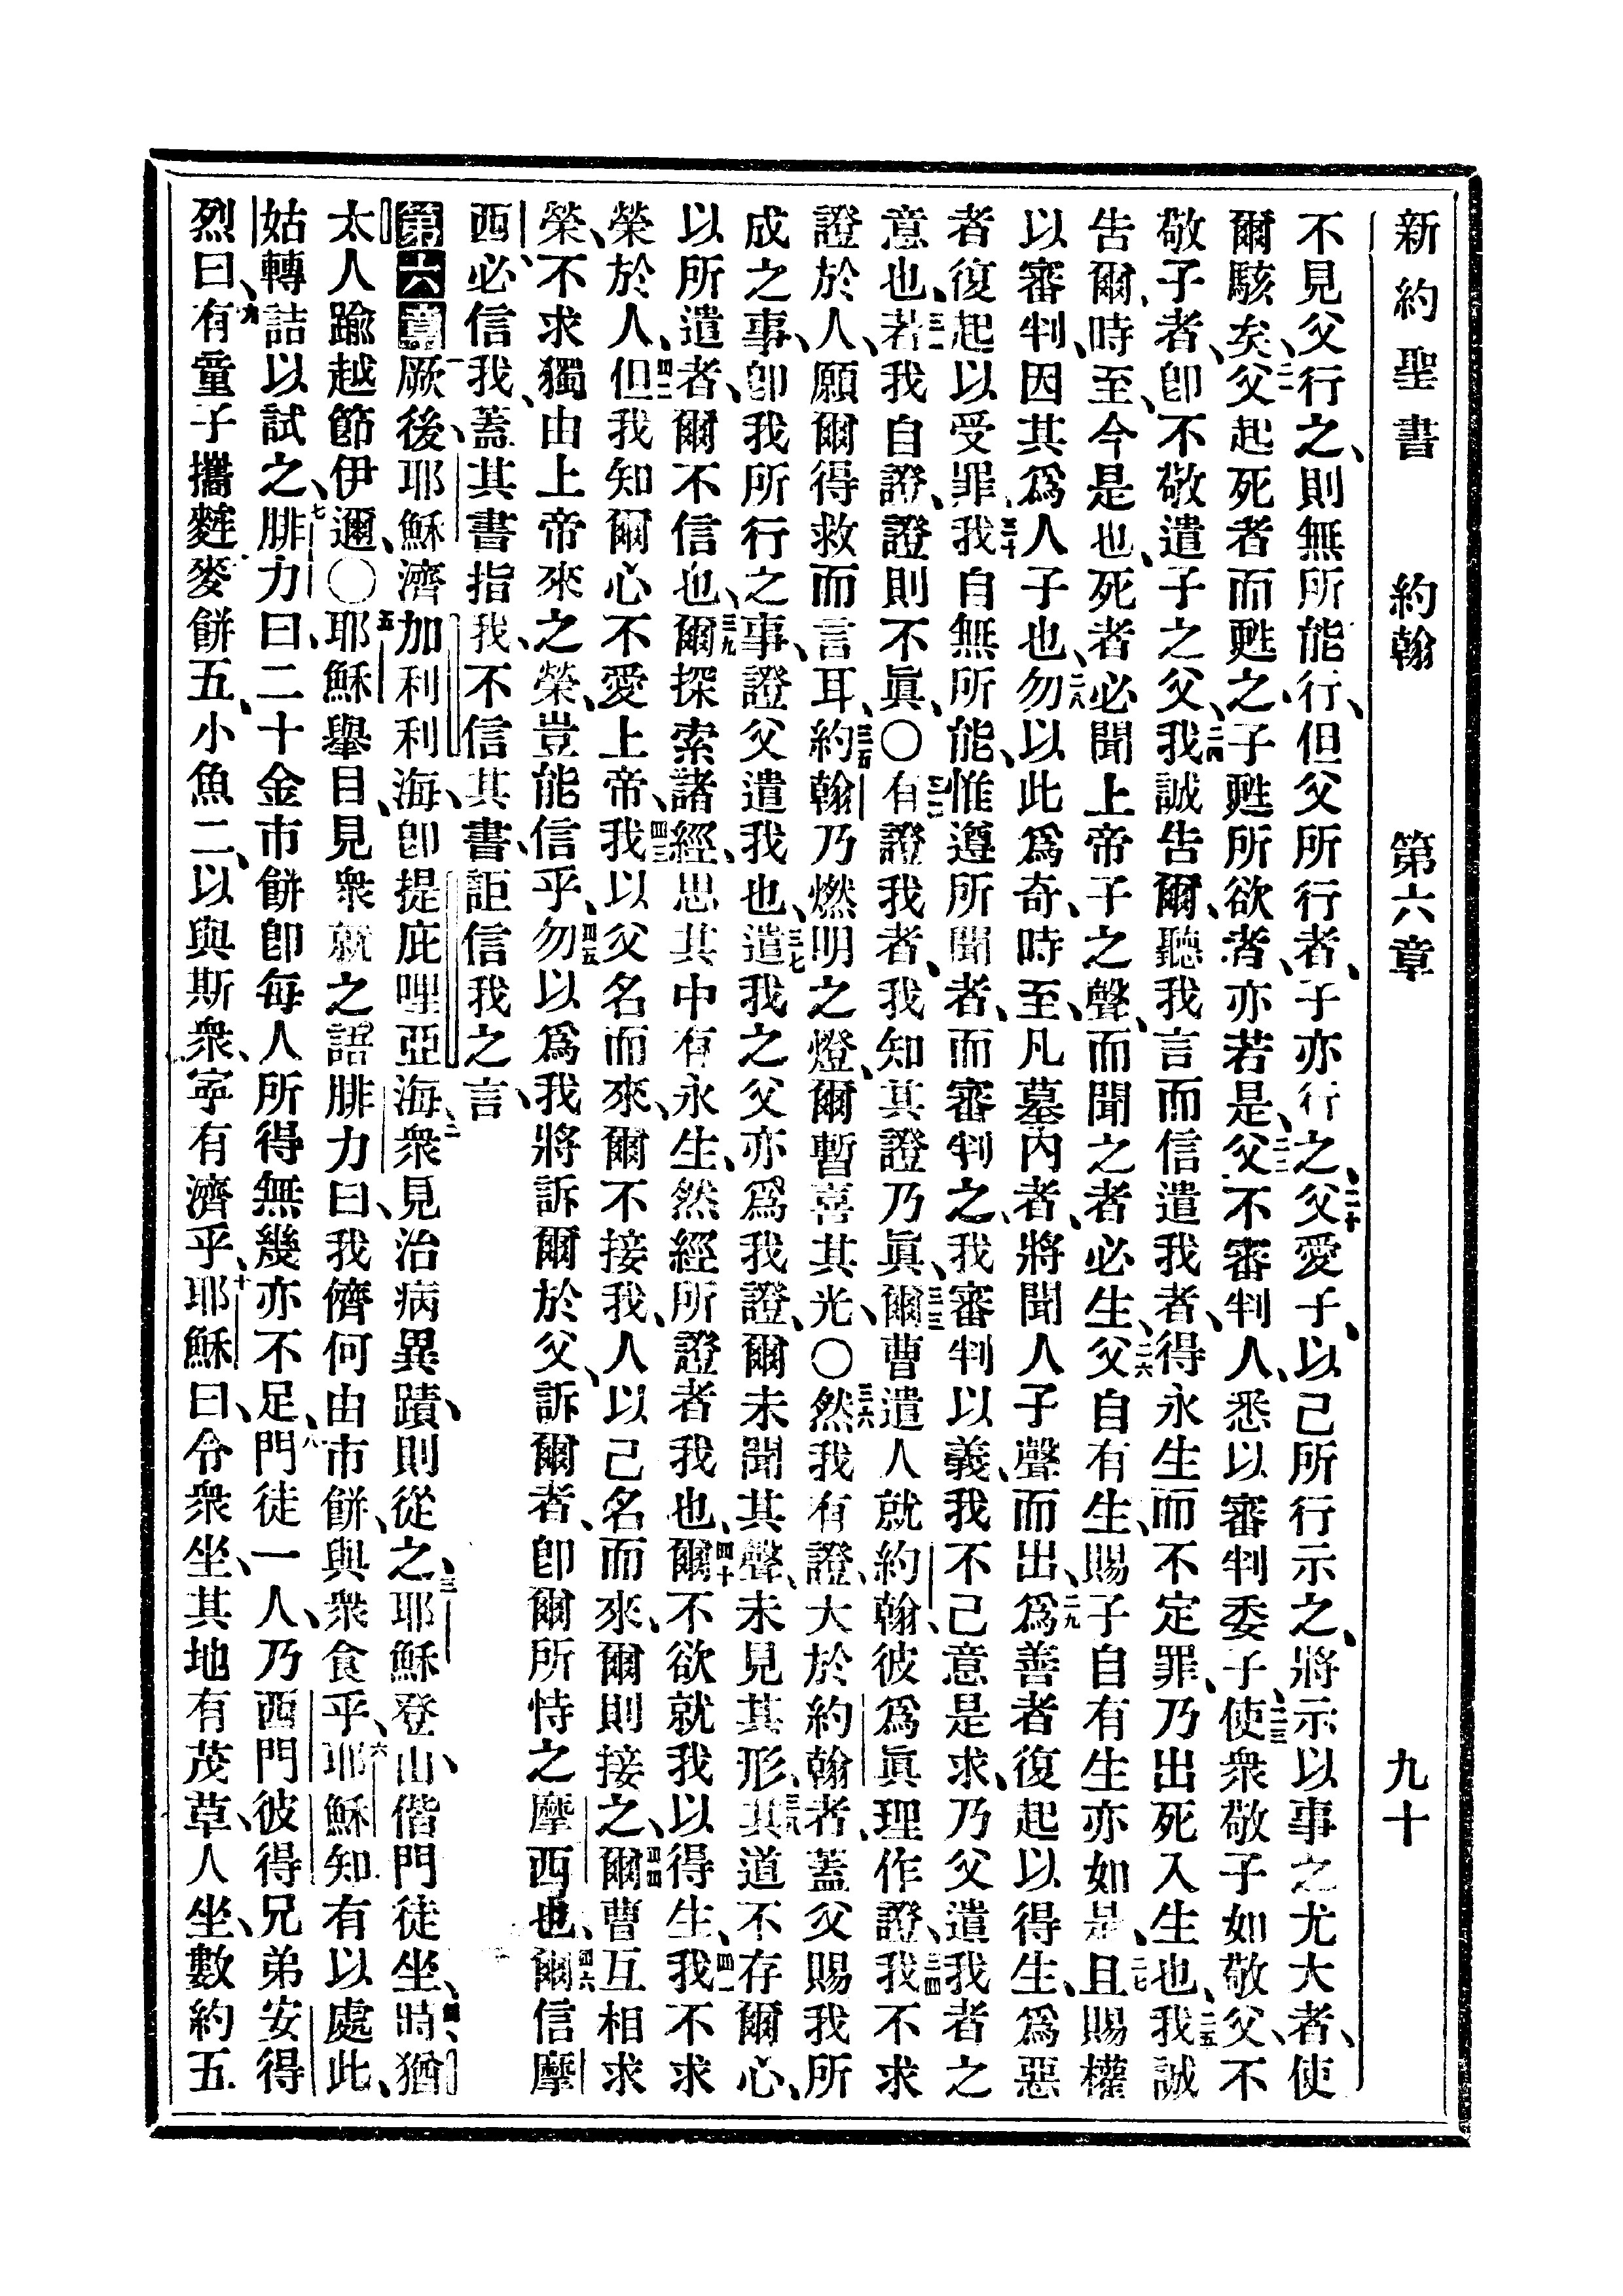 新約聖書 約翰 第六章 九十
不見父行之、則無所能行、但父所行者、子亦行之、二十父愛子、以己所行示之、將示以事之尤大者、使
爾駭矣、二一父起死者而甦之、子甦所欲者、亦若是、二二父不審判人、悉以審判委子、二三使衆敬子如敬父、不
敬子者、卽不敬遣子之父、二四我誠告爾、聽我言而信遣我者、得永生而不定罪、乃出死入生也、二五我誠
告爾、時至、今是也、死者必聞上帝子之聲、而聞之者必生、二六父自有生、賜子自有生亦如是、二七且賜權
以審判、因其爲人子也、二八勿以此爲奇、時至、凡墓內者、將聞人子聲而出、二九爲善者復起以得生、爲惡
者復起以受罪、三十我自無所能、惟遵所聞者、而審判之、我審判以義、我不己意是求、乃父遣我者之
意也、三一若我自證、證則不眞、〇三二有證我者、我知其證乃眞、三三爾曹遣人就約翰、彼爲眞理作證、三四我不求
證於人、願爾得救而言耳、三五約翰乃燃明之燈、爾暫喜其光、〇三六然我有證、大於約翰者、蓋父賜我所
成之事、卽我所行之事、證父遣我也、三七遣我之父亦爲我證、爾未聞其聲、未見其形、三八其道不存爾心、
以所遣者、爾不信也、三九爾探索諸經、思其中有永生、然經所證者我也、四十爾不欲就我以得生、四一我不求
榮於人、四二但我知爾心不愛上帝、四三我以父名而來、爾不接我、人以己名而來、爾則接之、四四爾曹互相求
榮、不求獨由上帝來之榮、豈能信乎、四五勿以爲我將訴爾於父、訴爾者、卽爾所恃之摩西也、四六爾信摩
西、必信我、蓋其書指我、不信其書、詎信我之言、
第六章一厥後、耶穌濟加利利海、卽提庇哩亞海、二衆見治病異蹟、則從之、三耶穌登山、偕門徒坐、四時、猶
太人踰越節伊邇、〇五耶穌舉目、見衆就之、語腓力曰、我儕何由市餅、與衆食乎、六耶穌知有以處此、
姑轉詰以試之、七腓力曰、二十金市餅、卽每人所得無幾、亦不足、八門徒一人、乃西門彼得兄弟安得
烈曰、九有童子攜麰麥餅五、小魚二、以與斯衆、寧有濟乎、十耶穌曰、令衆坐、其地有茂草、人坐、數約五